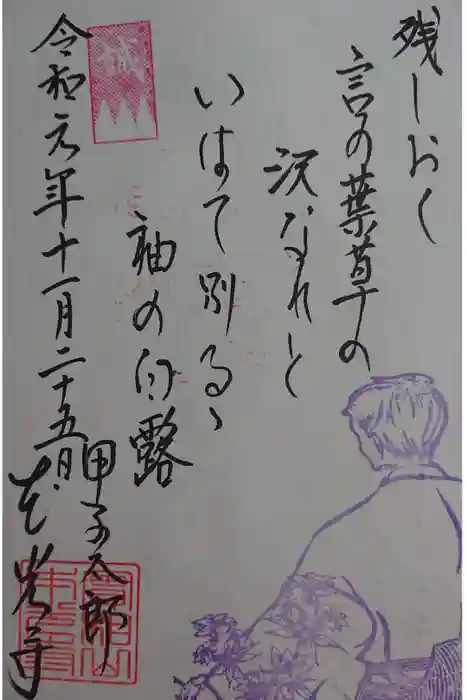 残しおく
言の葉草の
沢なれと
いはて別るゝ
袖の白露
甲子太郎
令和元年十一月二十五日
光寺